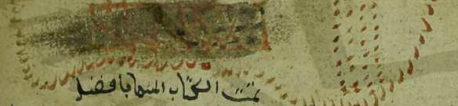 تمت الكتاب المسما بافضل